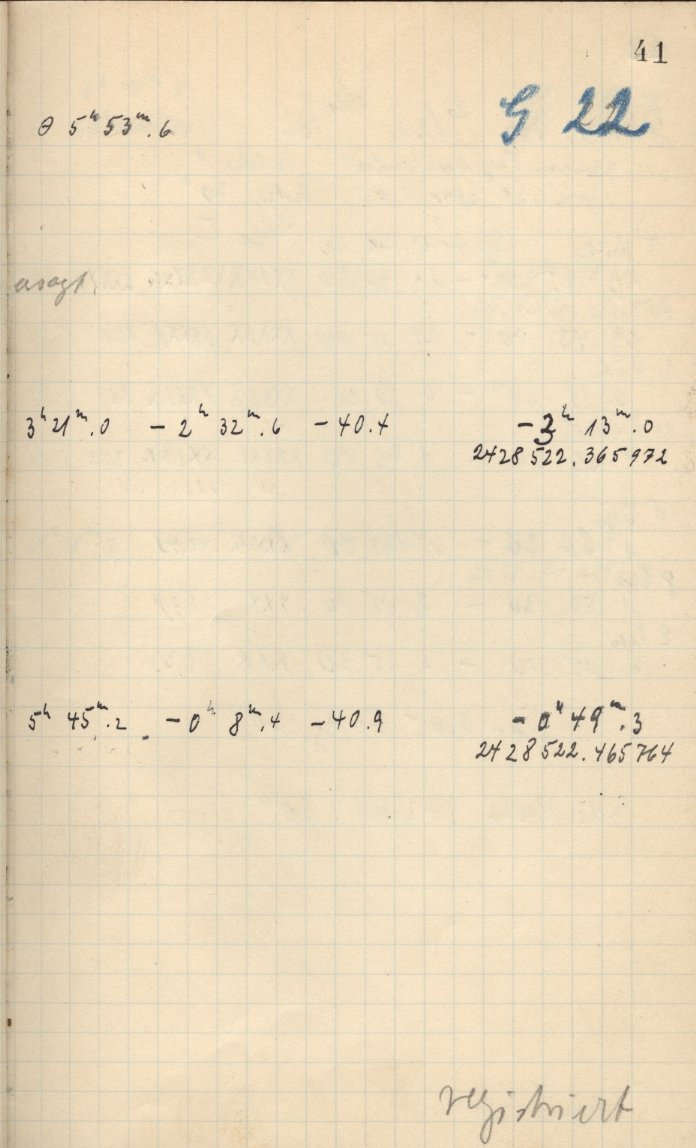 41
G 22
θ 5ʰ 53ᵐ.6
3ʰ 21ᵐ.0 -2ʰ 32ᵐ.6 -40.4 -3ʰ 13ᵐ.0
2428522.365972
5ʰ 45ᵐ.2 -0ʰ 8ᵐ.4 -40.9 -0ʰ 49ᵐ.3
2428522.465764
registriert